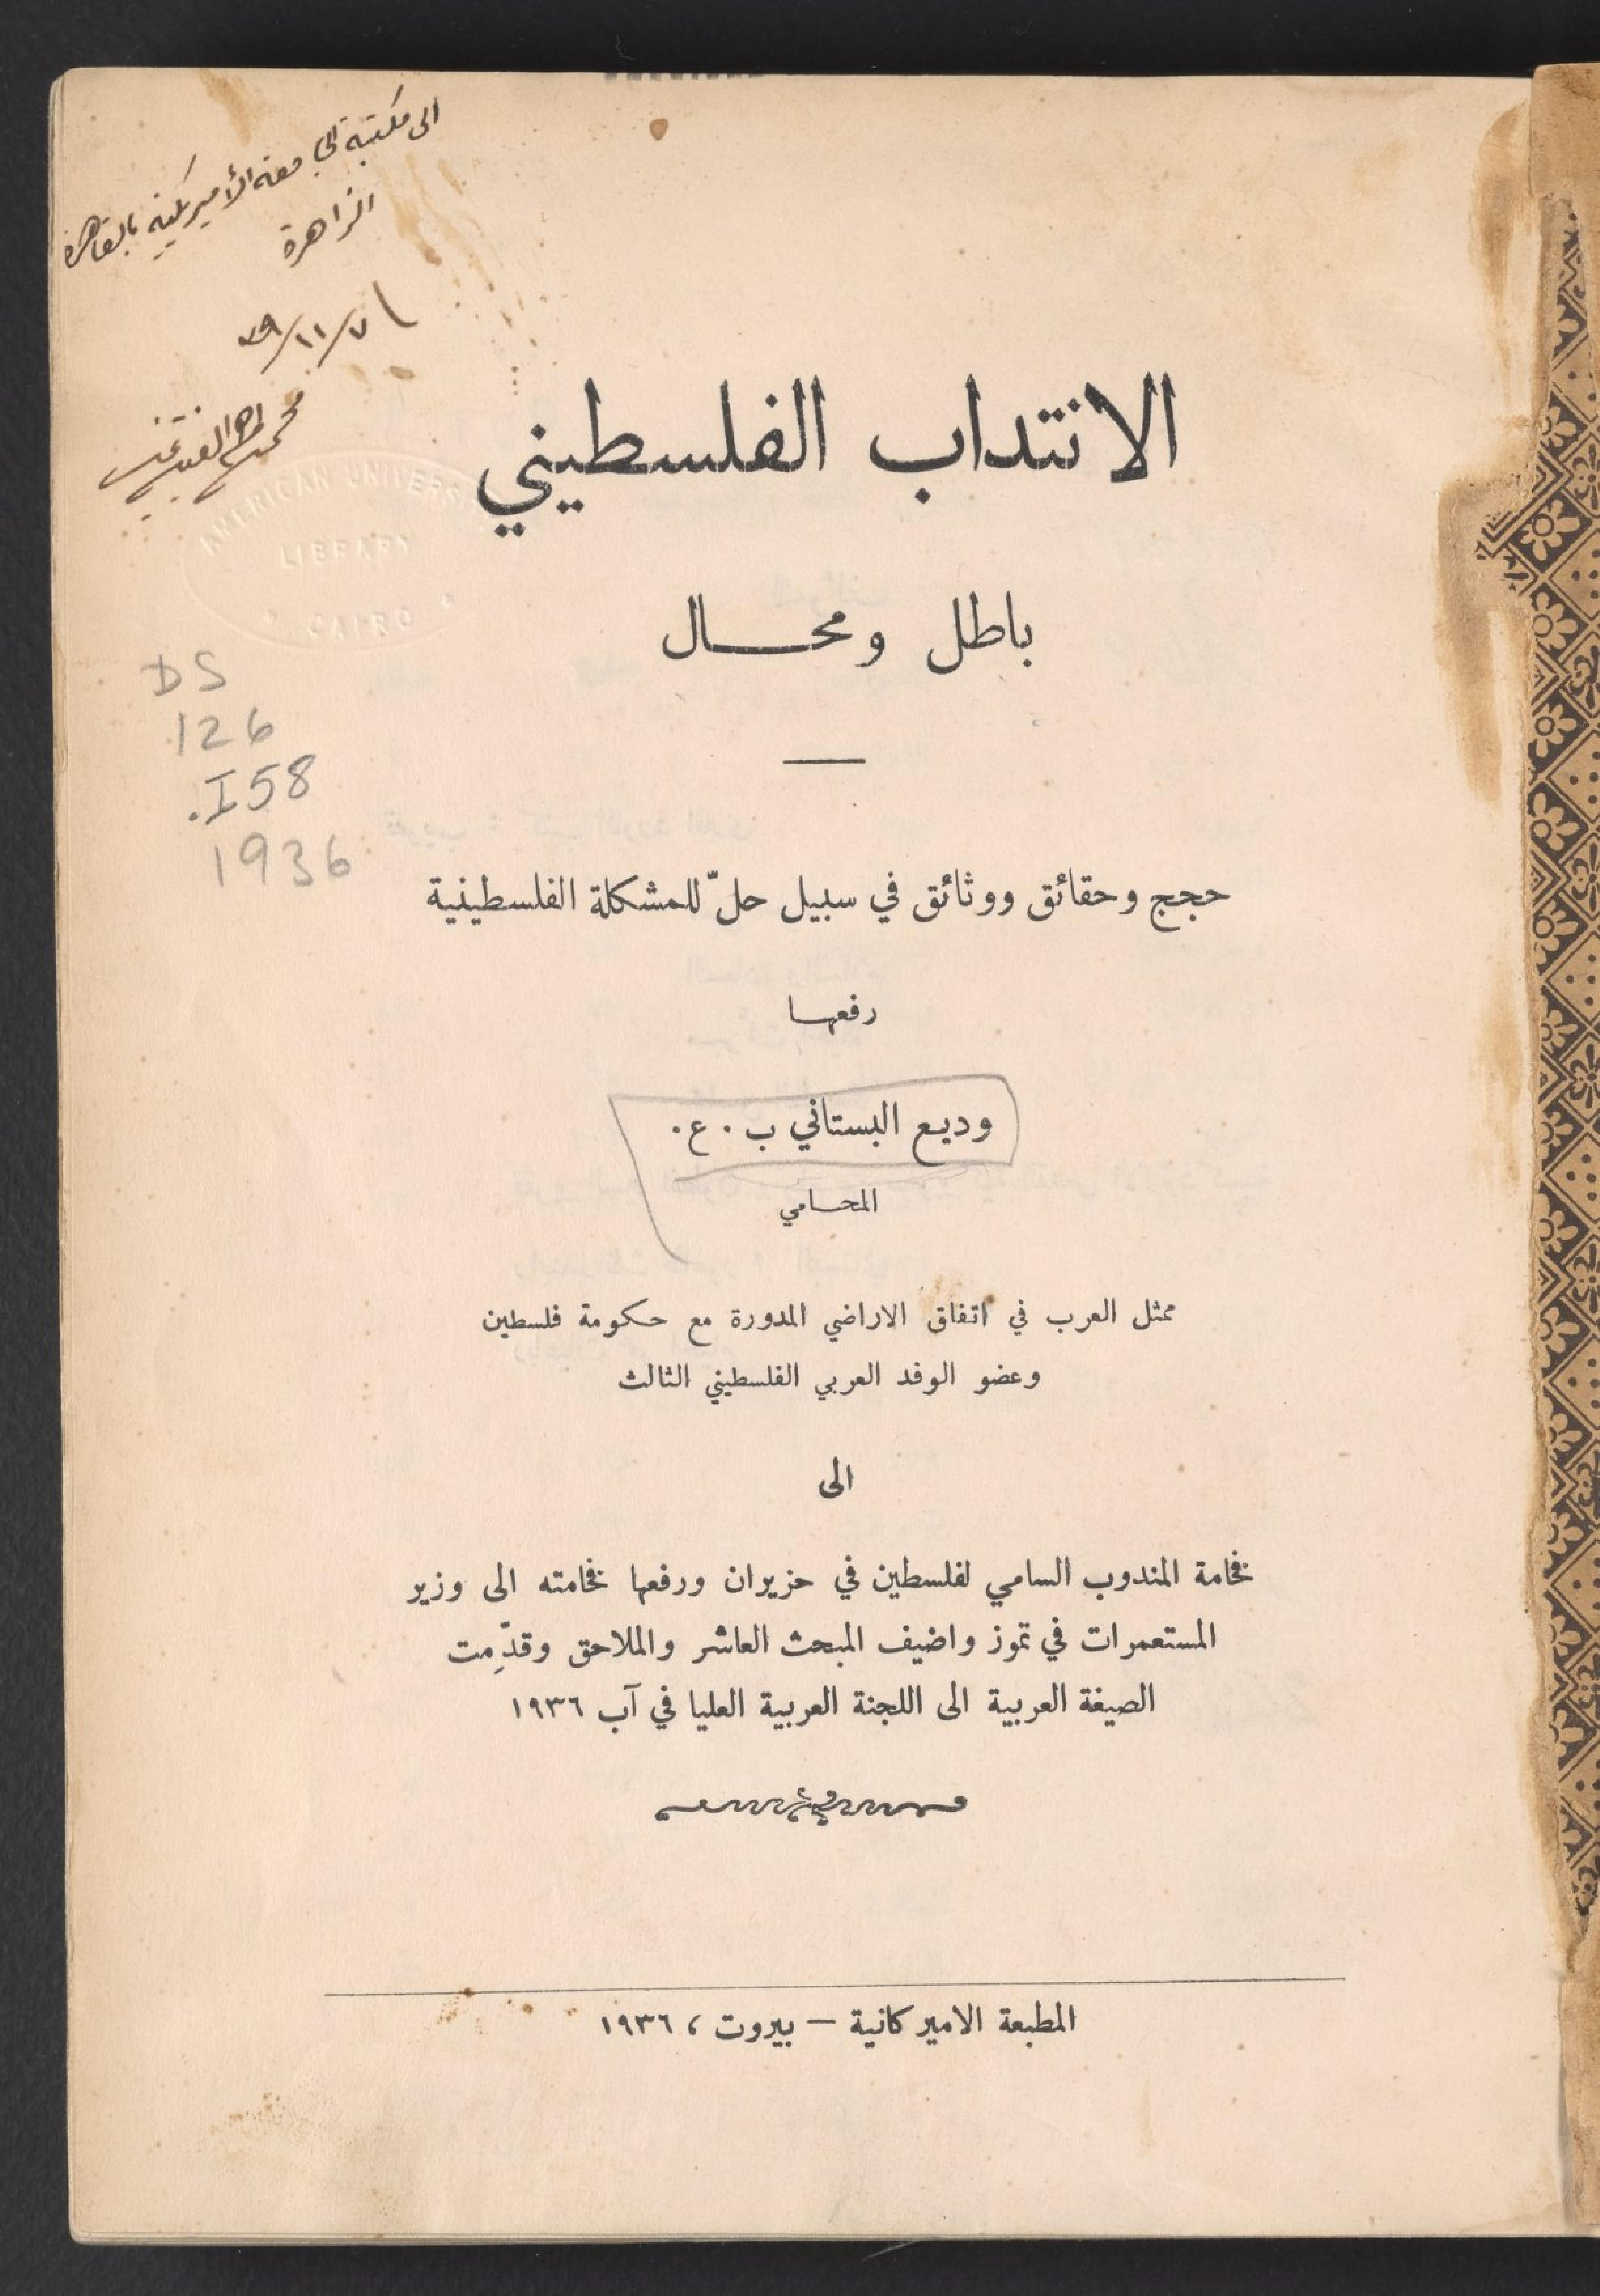 الى مكتبة الجامعة الأميركية بالقاهرة
الزاهرة
١١/٧
محمد
AMERICAN UNIVERS
LIBRARY
CAIRO
DS
126
.I58
1936
الانتداب الفلسطيني
باطل ومحال
حجج وحقائق ووثائق في سبيل حلّ للمشكلة الفلسطينية
رفعها
وديع البستاني ب . ع .
المحامي
ممثل العرب في اتفاق الاراضي المدورة مع حكومة فلسطين
وعضو الوفد العربي الفلسطيني الثالث
الى
فخامة المندوب السامي لفلسطين في حزيران ورفعها فخامته الى وزير
المستعمرات في تموز واضيف المبحث العاشر والملاحق وقدِّمت
الصيغة العربية الى اللجنة العربية العليا في آب ١٩٣٦
المطبعة الاميركانية – بيروت ، ١٩٣٦